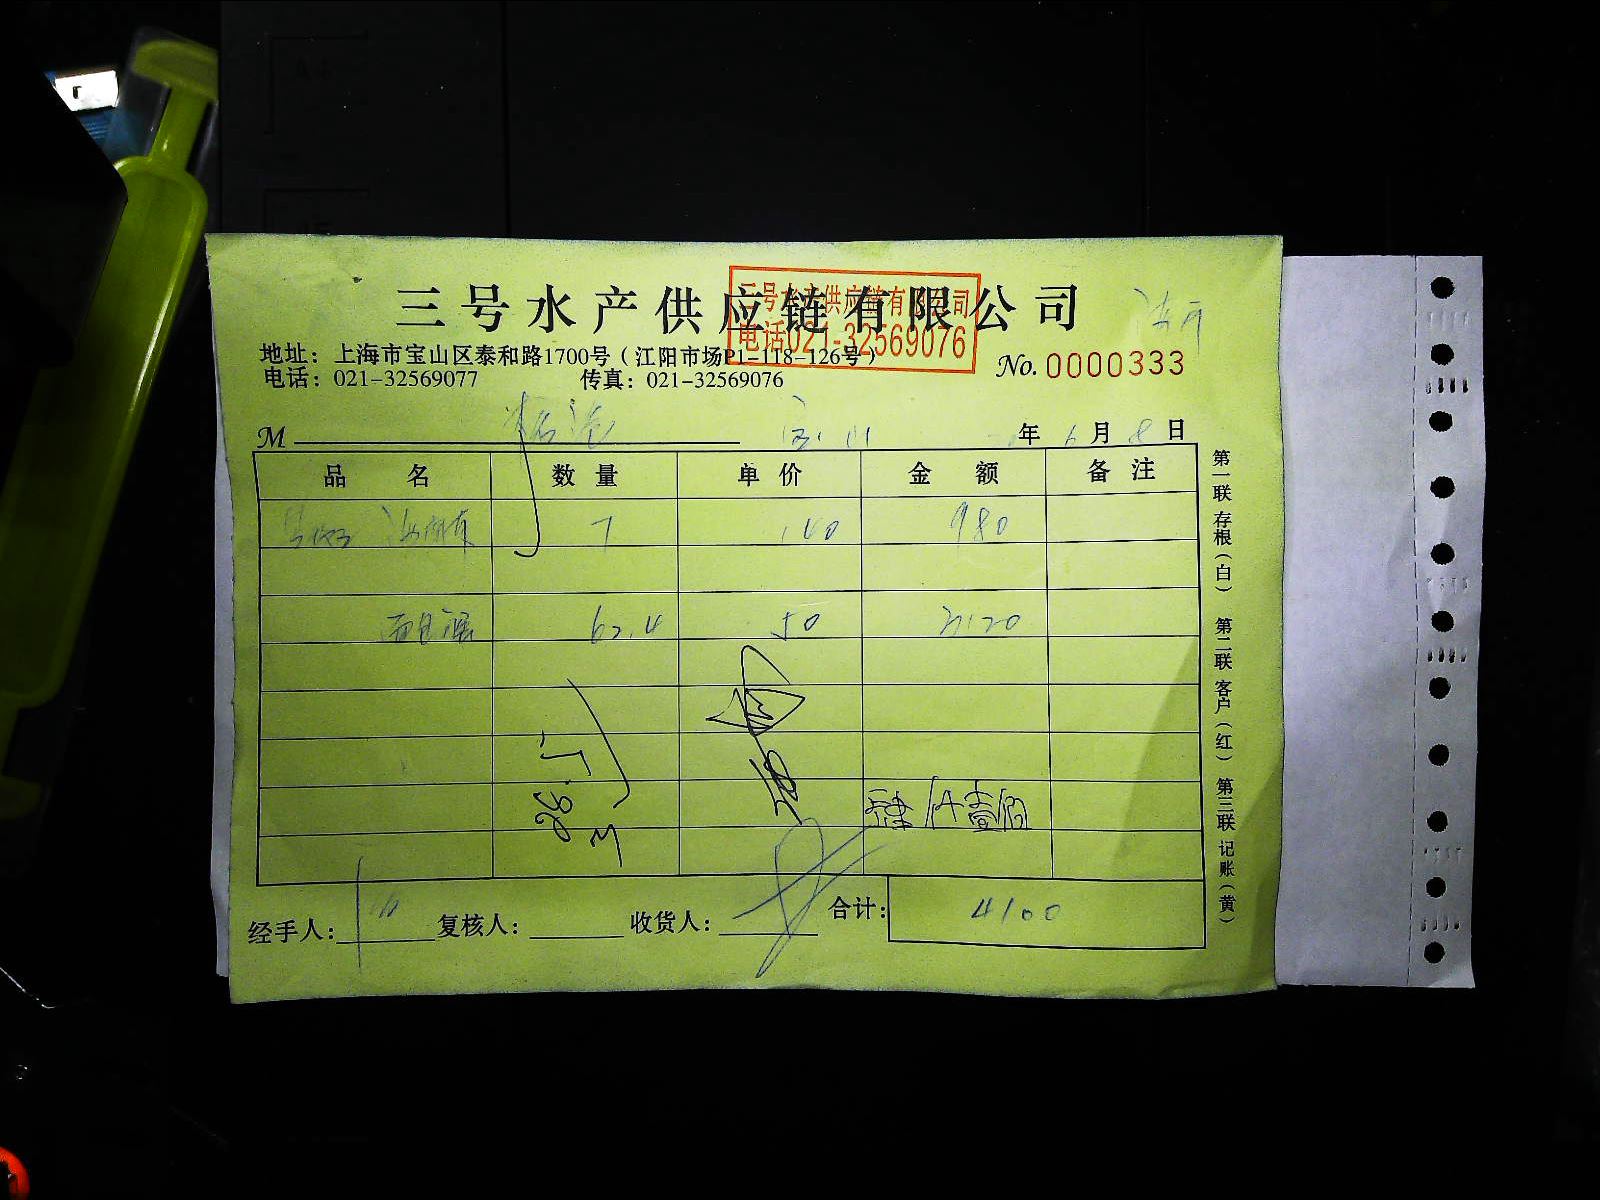 三号水产供应链有限公司
三号水产供应链有限公司
电话021-32569076
地址：上海市宝山区泰和路1700号（江阳市场P1-118-126号）
电话：021-32569077 传真：021-32569076
No. 0000333
M 年 6 月 8 日
品名 数量 单价 金额 备注
7 140 980
62.4 50 3120
肆仟壹佰
经手人： 复核人： 收货人： 合计： 4100
第一联 存根（白） 第二联 客户（红） 第三联 记账（黄）